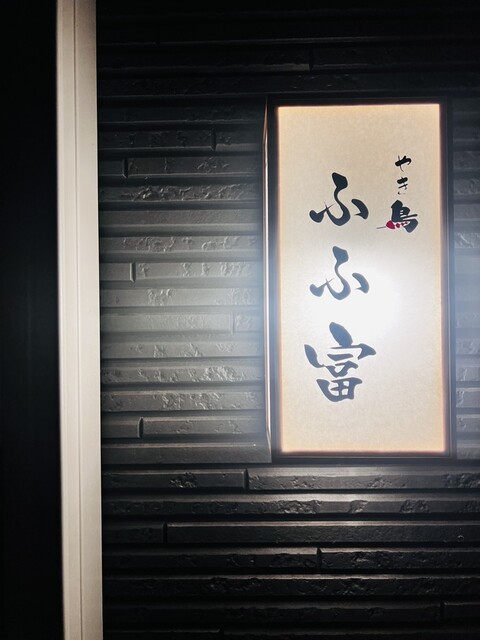 やき鳥
ふふ富